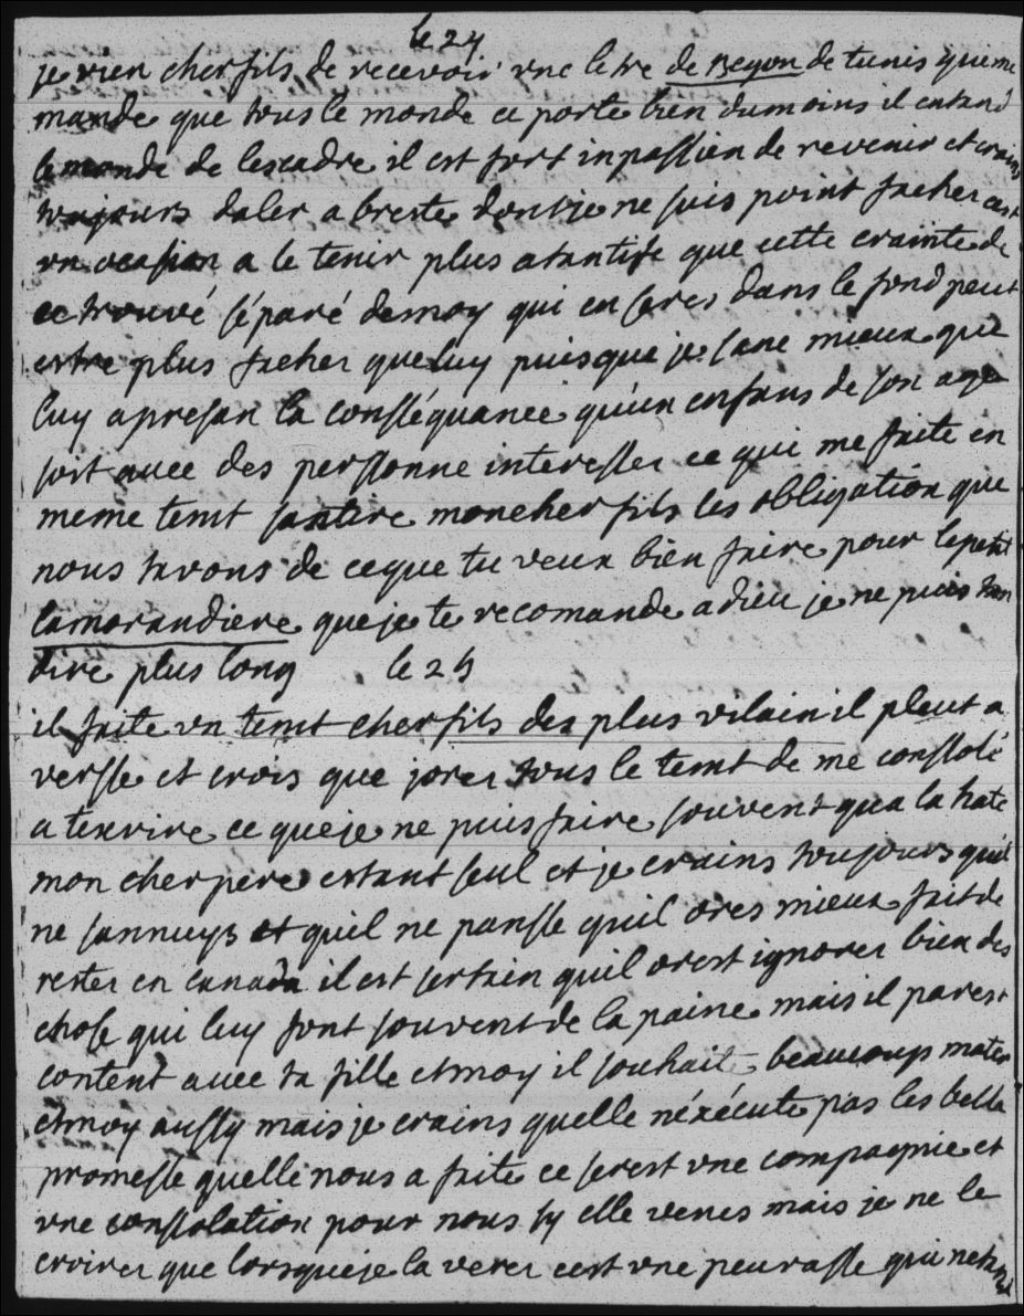 le 24
je vien cher fils de recevoir une letre de Begon de tunis qui me
mande que tous le monde ce porte bien du moins il entend
le monde de lescadre il est fort inpassien de revenir et crains
toujours daler a breste dont je ne suis point facher cest
un ocasion a le tenir plus atantife que cette crainte de
ce trouvé séparé de moy qui en seres dans le fond peut
estre plus facher que luy puisque je sans mieux que
luy apresan la conséquance qu'un enfans de son age
soit avec des personne interesser ce qui me faite en
meme temt santire mon cher fils les obligation que
nous tavons de ce que tu veux bien faire pour le petit
lamorandiere que je te recomande adieu je ne puis tan
dire plus long le 25
il faite un temt cher fils des plus vilain il pleut a
versse et crois que jorer tous le temt de me consolé
a tescrire ce que je ne puis faire souvent qua la hate
mon cher pere estant seul et je crains toujours quil
ne sannuys et quil ne pansse quil ores mieux fait de
rester en canada il est sertain quil orest ignorer bien des
chose qui luy font souvent de la paine mais il parest
content avec ta fille et moy il souhait beaucoups mater
et moy aussy mais je crains quelle néxécute pas les belle
promesse quelle nous a faite ce serest une compagnie et
une consolation pour nous sy elle venes mais je ne le
croirer que lorsque je la verer cest une peurasse qui